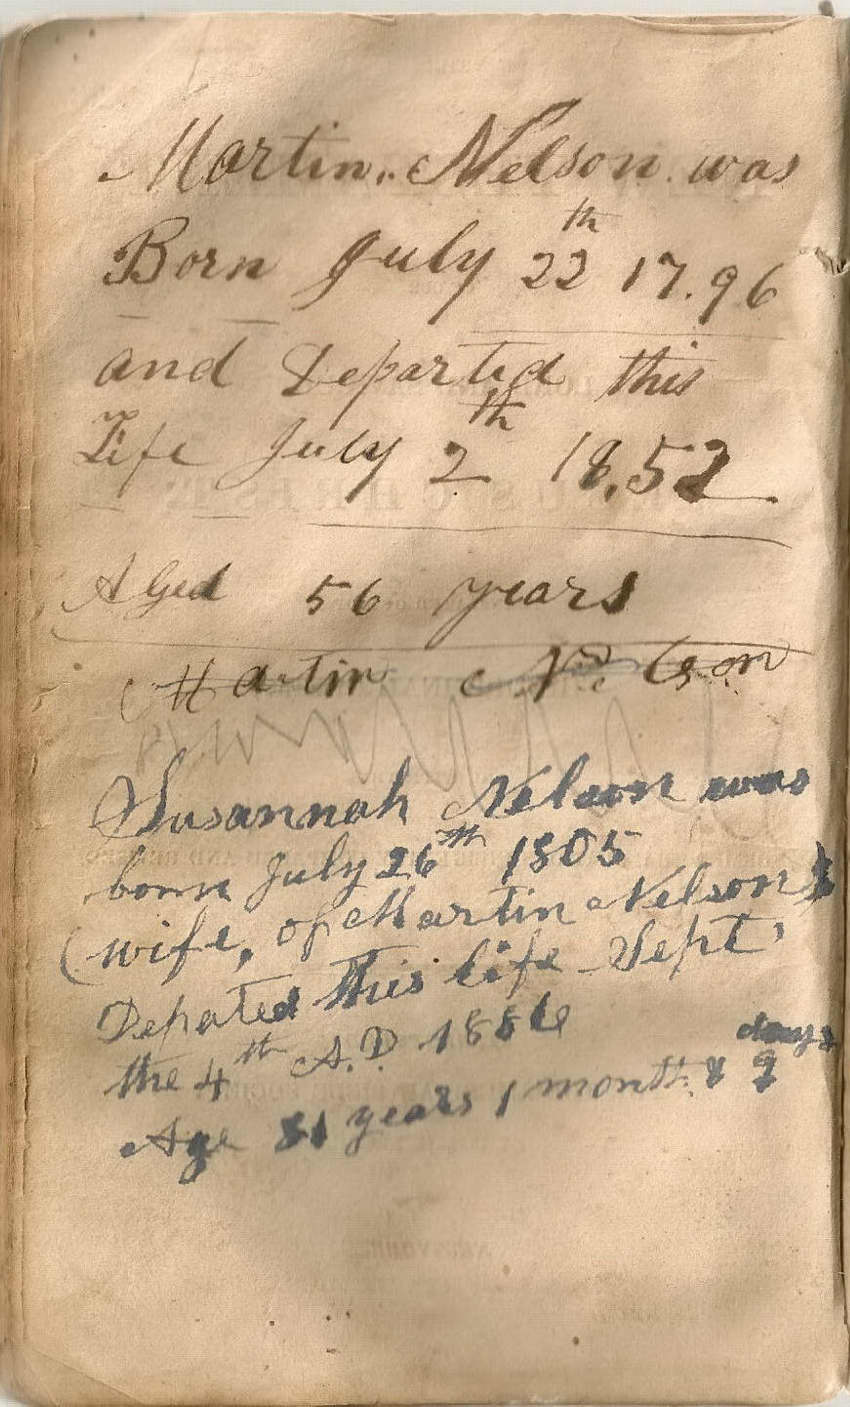 Martin. Nelson. was
Born July 22th 17.96
and Departed this
Life July 2th 18.52
Aged 56 years
Martin Nelson
Susannah Nelson was
born July 26th 1805
(wife, of Martin Nelson)
Depated this life Sept
the 4th A.D. 1886
Age 81 years 1 month & 9 days